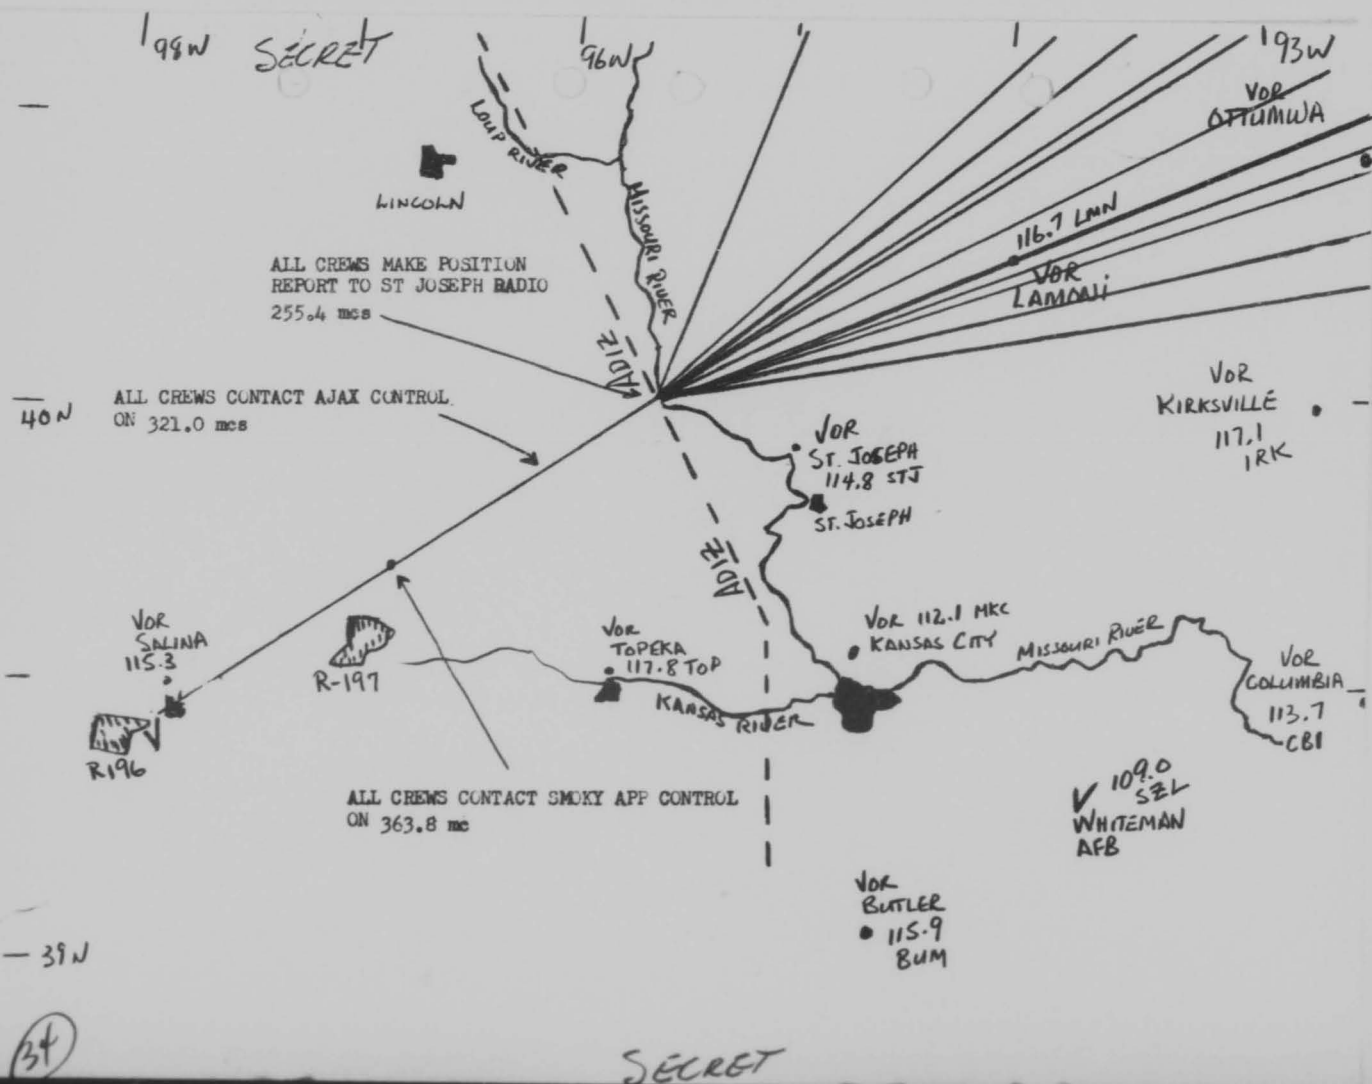 98W
SECRET
96W
93W
VOR
OTTUMWA
LOUP RIVER
LINCOLN
MISSOURI RIVER
116.7 LMN
VOR
LAMONI
ALL CREWS MAKE POSITION
REPORT TO ST JOSEPH RADIO
255.4 mcs
ADIZ
40N
ALL CREWS CONTACT AJAX CONTROL
ON 321.0 mcs
VOR
KIRKSVILLE
117.1
IRK
VOR
ST. JOSEPH
114.8 STJ
ST. JOSEPH
ADIZ
VOR
SALINA
115.3
R-197
VOR
TOPEKA
117.8 TOP
KANSAS RIVER
VOR 112.1 MKC
KANSAS CITY
MISSOURI RIVER
VOR
COLUMBIA
113.7
CBI
R196
ALL CREWS CONTACT SMOKY APP CONTROL
ON 363.8 mc
109.0
SZL
WHITEMAN
AFB
VOR
BUTLER
115.9
BUM
39N
34
SECRET